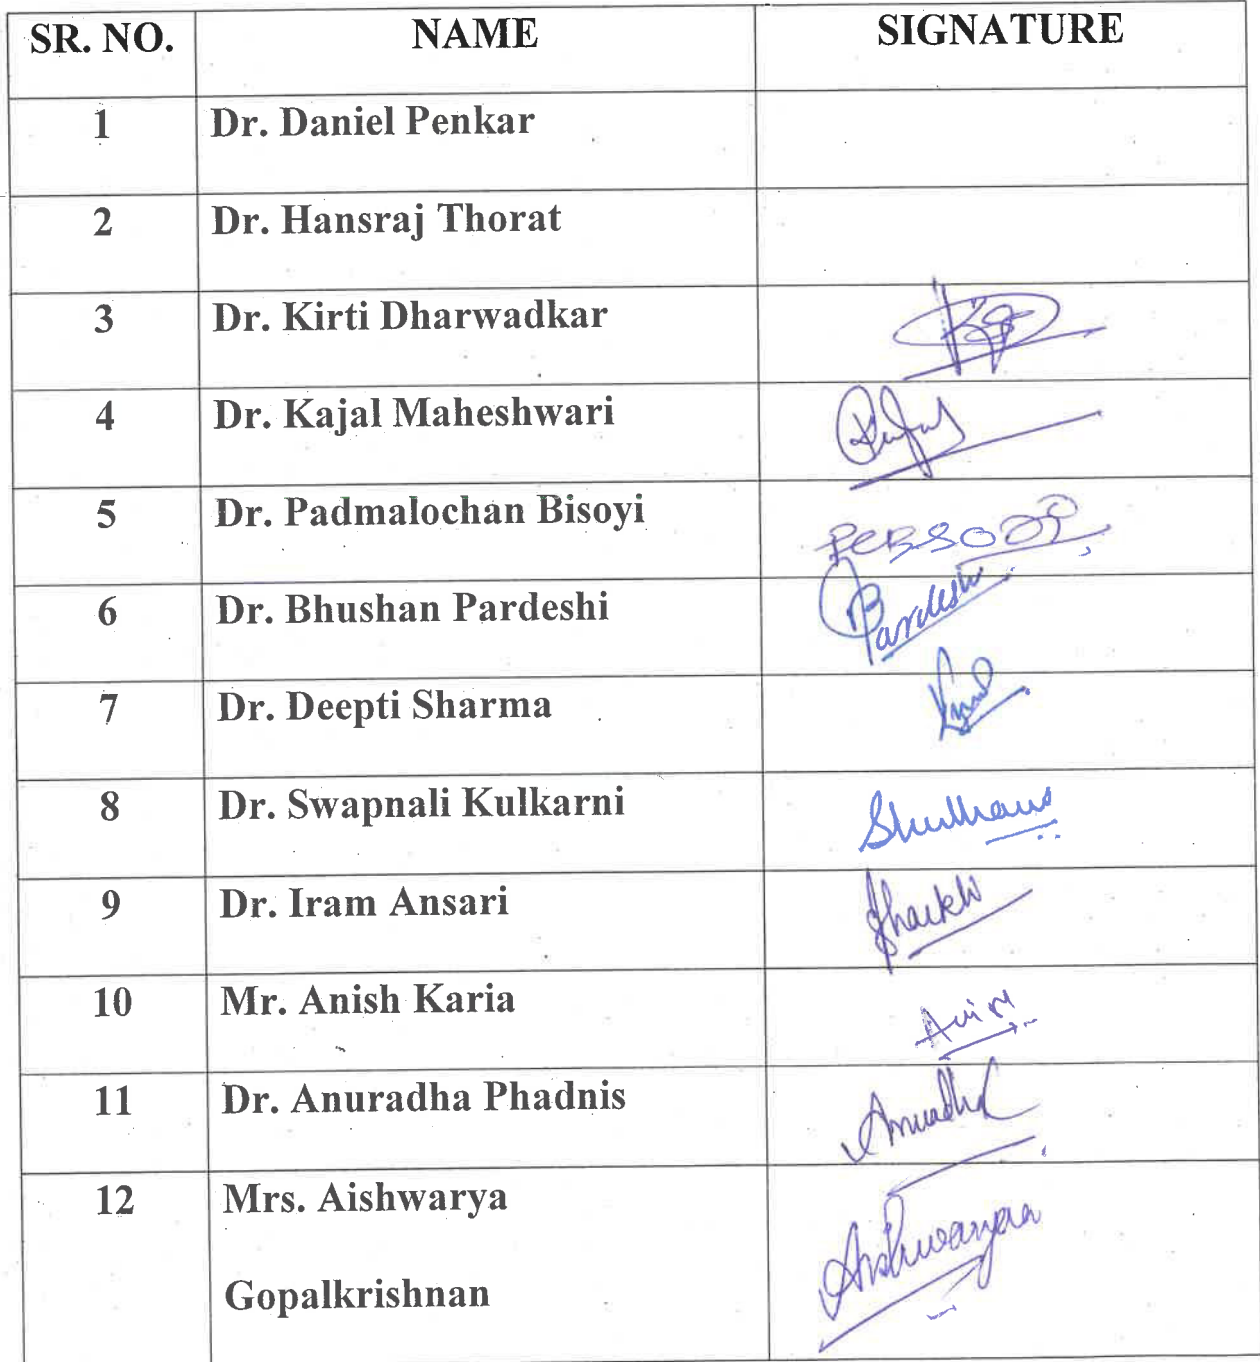 SR. NO. NAME SIGNATURE
1 Dr. Daniel Penkar
2 Dr. Hansraj Thorat
3 Dr. Kirti Dharwadkar
4 Dr. Kajal Maheshwari
5 Dr. Padmalochan Bisoyi
6 Dr. Bhushan Pardeshi Pardeshi
7 Dr. Deepti Sharma
8 Dr. Swapnali Kulkarni
9 Dr. Iram Ansari Shaikh
10 Mr. Anish Karia
11 Dr. Anuradha Phadnis Anuradha
12 Mrs. Aishwarya Aishwaryaa
Gopalkrishnan